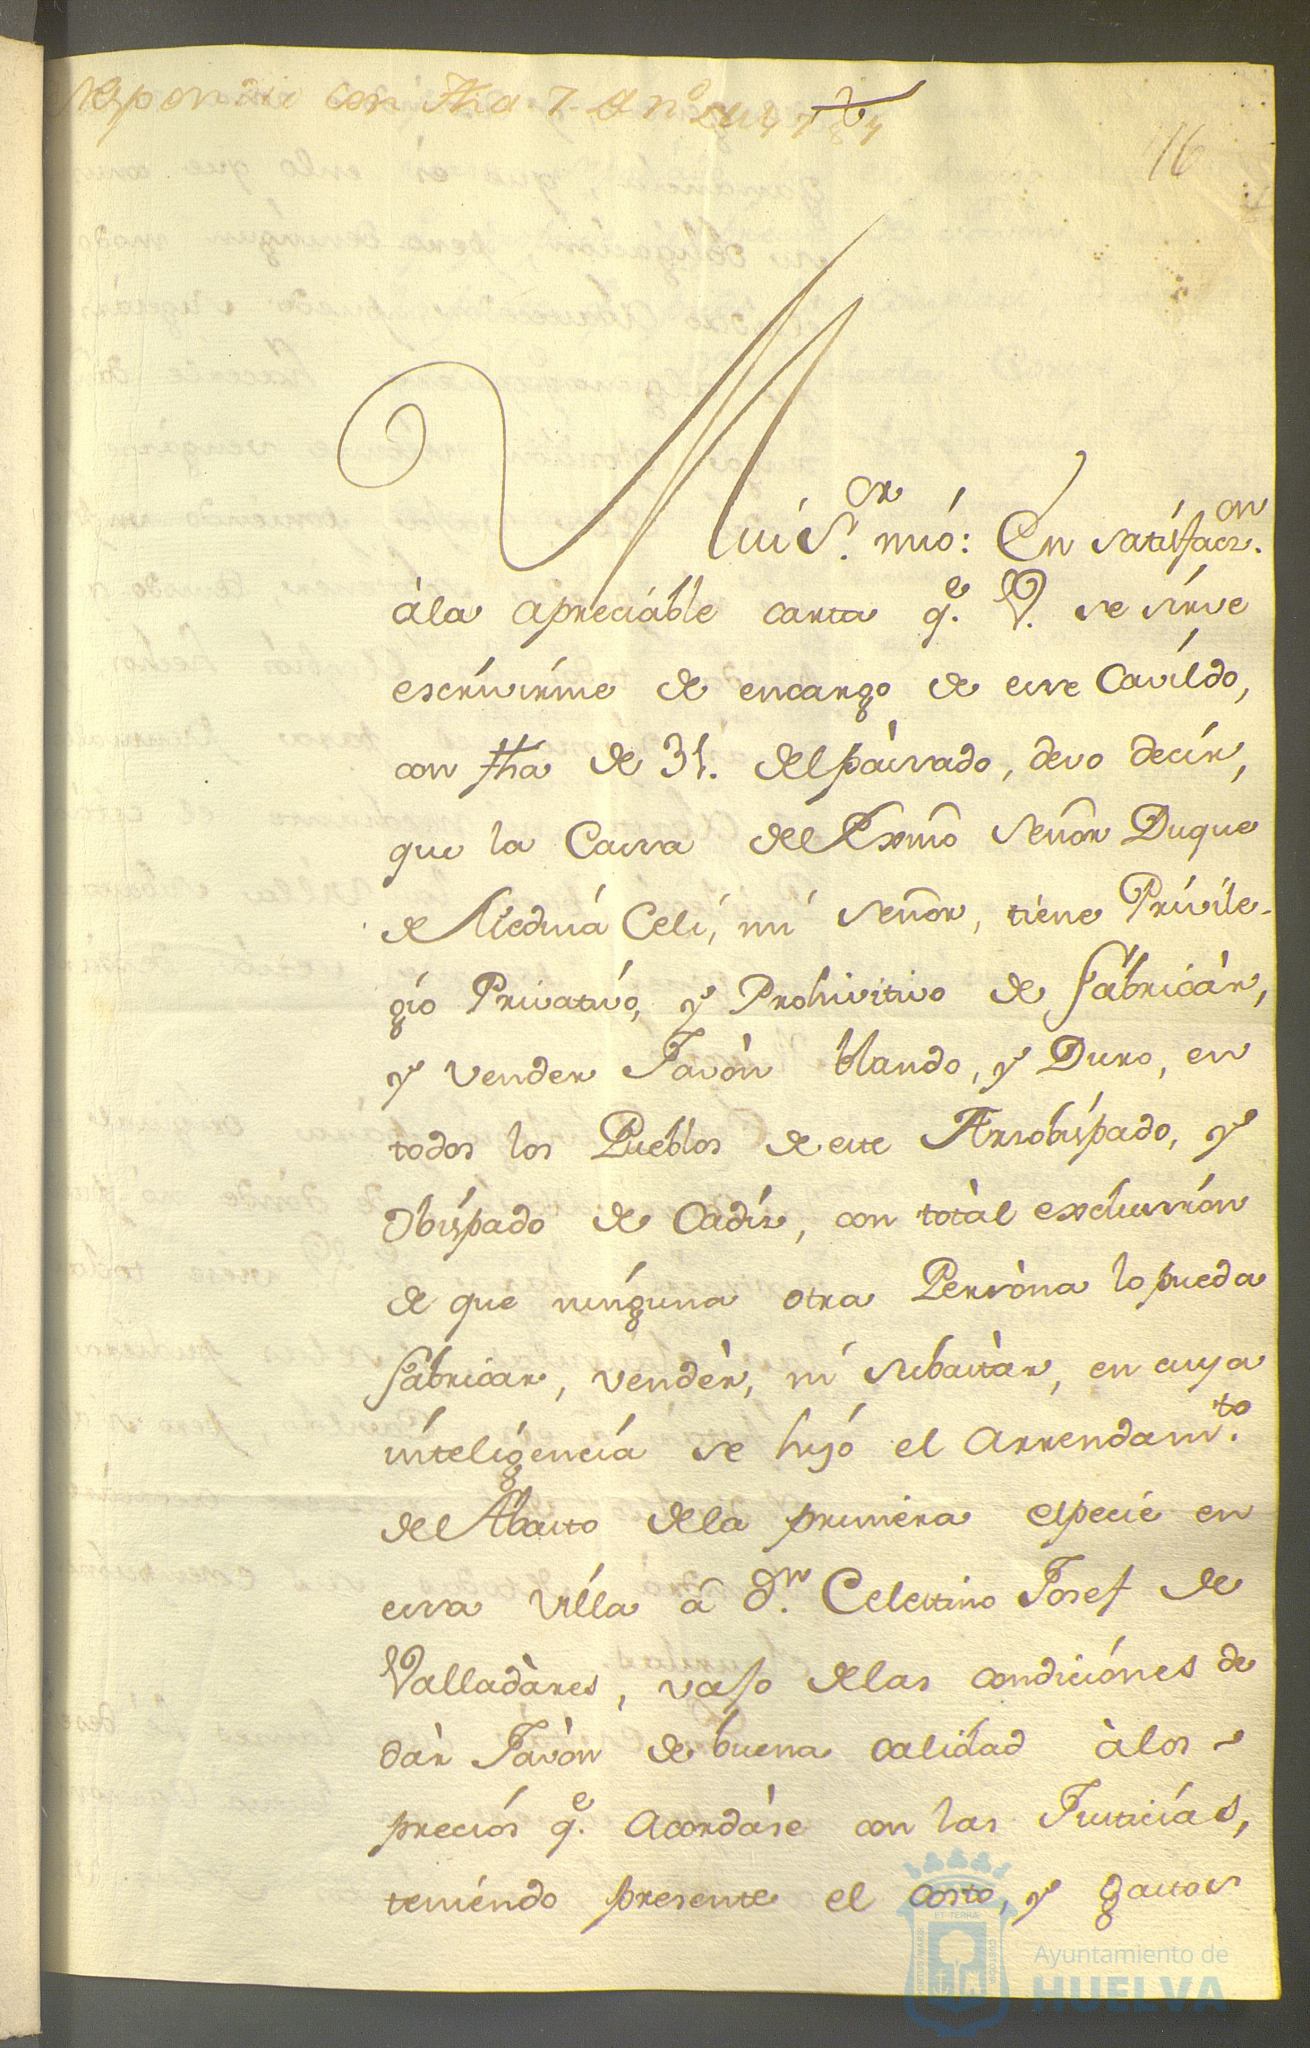 con fha 7
16
Mui S.or mió: En satisfacn.on
àla apreciáble carta q.e V. se sírve
escrivírme de encargo de esse Cavíldo,
con fha de 31. del passado, devo decír,
que la Cassa del Exmõ Señor Duque
de Mediná Celí, mí Señor, tiene Privile-
gio Privatívo, y Prohivitivo de fabricàr,
y vender Javòn blando, y Duro, en
todos los Pueblos de este Arzobispado, y
Obispado de Cadíz, con totàl exclussión
de que nínguna otra Persòna lo pueda
fabricar, vendèr, ni subastàr, en cuya
ínteligencía se hizó el Arrendam.to
del Abasto dela primèra especie en
essa Villa â D.n Celestino Josef de
Valladàres, vajo delas condiciónes de
dàr Javòn de buena calidad àlos
preciós q.e acordàse con las Justicías,
teniéndo presente el costo, y gastos
Ayuntamiento de
HUELVA